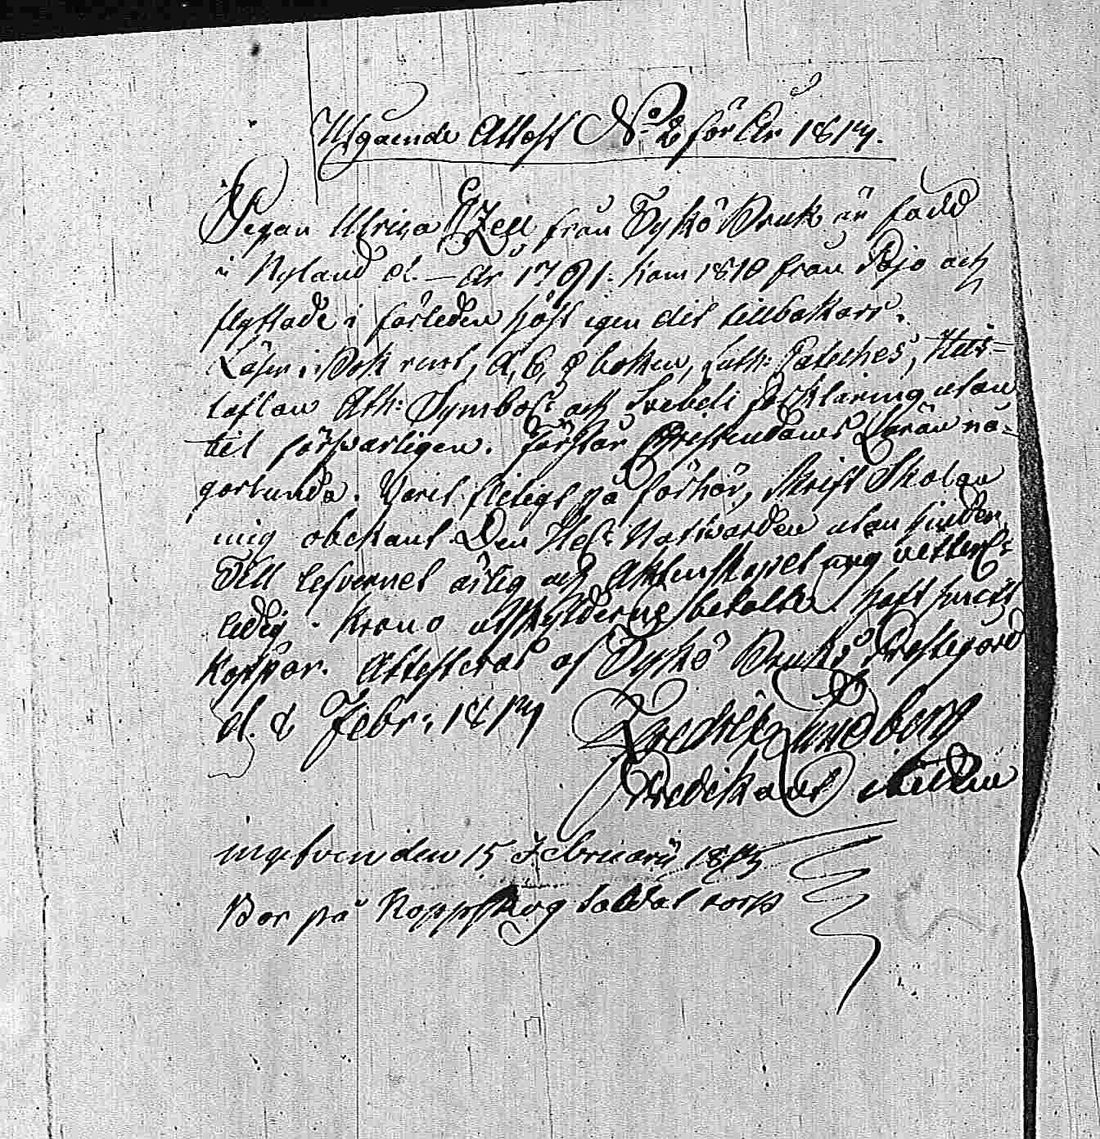 Utgående Attest No 2 för År 1817.
Pigan Ulrica Zell från Tykö Bruk är född
i Nyland d. — År 1791. kom 1810 från Pojo och
flyttade i förleden höst igen dit tillbakars.
Läser i Bok rent, A, B, C boken, Luth: Cateches, Hus-
taflan Ath: Symbol: och Svebeli förklaring utan
til försvarligen. Förstår Christendoms Läran nå-
gorlunda. Varit flitigt på förhör, Skrift Skolan
mig obekant. Den Hel: Nattvarden utan hinder.
Till lefvernet ärlig och Äktenskapet mig vetterl:
ledig. Krono utskylderne betalte. Haft
Koppor. Attesteras af Tykö Bruks Prestegård
d. 8 Febr: 1817
Fredric Lindberg
Predikant
ingefven den 15 Februarii 1817
Bor på Koppskog Soldat torp